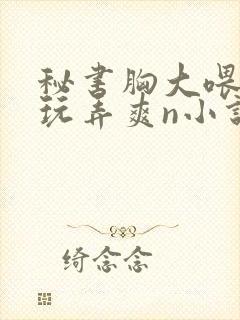 秘书胸大喂
玩弄爽n小
绮念念